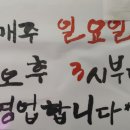 매주 일요일
오후 3시부
영업합니다